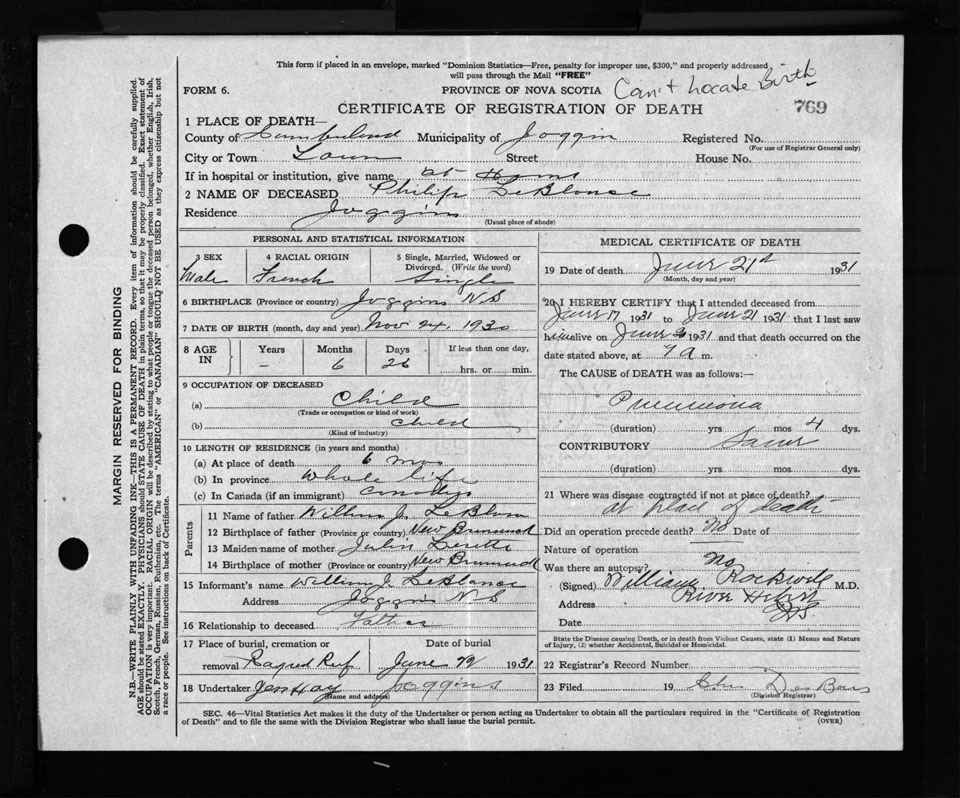 This form if placed in an envelope, marked "Dominion Statistics—Free, penalty for improper use, $300," and properly addressed
will pass through the Mail "FREE"
FORM 6. PROVINCE OF NOVA SCOTIA Can't Locate Birth
CERTIFICATE OF REGISTRATION OF DEATH 769
1 PLACE OF DEATH—
County of Cumberland Municipality of Joggin Registered No.
(For use of Registrar General only)
City or Town Street House No.
If in hospital or institution, give name at Home
2 NAME OF DECEASED Philip LeBlance
Residence Joggins
(Usual place of abode)
PERSONAL AND STATISTICAL INFORMATION
3 SEX 4 RACIAL ORIGIN 5 Single, Married, Widowed or
Divorced. (Write the word)
Male French Single
6 BIRTHPLACE (Province or country) Joggins N S
7 DATE OF BIRTH (month, day and year) Nov 24, 1930
8 AGE IN Years Months Days If less than one day,
– 6 26 hrs. or min.
9 OCCUPATION OF DECEASED
(a) Child
(Trade or occupation or kind of work)
(b) Child
(Kind of industry)
10 LENGTH OF RESIDENCE (in years and months)
(a) At place of death 6 mos
(b) In province Whole life
(c) In Canada (if an immigrant)
Parents
11 Name of father J.
12 Birthplace of father (Province or country) New Brunswick
13 Maiden name of mother
14 Birthplace of mother (Province or country) New Brunswick
15 Informant's name William J. LeBlance
Address Joggins N S
16 Relationship to deceased Father
17 Place of burial, cremation or Date of burial
removal June 22 1931
18 Undertaker Joggins
(Name and address)
MEDICAL CERTIFICATE OF DEATH
19 Date of death June 21st 1931
(Month, day and year)
20 I HEREBY CERTIFY that I attended deceased from
June 17 1931 to June 21 1931 that I last saw
him alive on June 1931 and that death occurred on the
date stated above, at 9 a m.
The CAUSE of DEATH was as follows:—
Pneumona
(duration) yrs mos 4 dys.
CONTRIBUTORY Same
(duration) yrs. mos. dys.
21 Where was disease contracted if not at place of death?
at place of death
Did an operation precede death? No Date of
Nature of operation
Was there an autopsy? No
(Signed) William Rockwell M.D.
Address River Hebert
NS
Date
State the Disease causing Death, or in death from Violent Causes, state (1) Means and Nature
of Injury, and (2) whether Accidental, Suicidal or Homicidal.
22 Registrar's Record Number
23 Filed 19 Des Bars
(Division Registrar)
SEC. 46—Vital Statistics Act makes it the duty of the Undertaker or person acting as Undertaker to obtain all the particulars required in the "Certificate of Registration
of Death" and to file the same with the Division Registrar who shall issue the burial permit. (OVER)
MARGIN RESERVED FOR BINDING
N.B.—WRITE PLAINLY WITH UNFADING INK—THIS IS A PERMANENT RECORD. Every item of information should be carefully supplied.
AGE should be stated EXACTLY. PHYSICIANS should STATE CAUSE OF DEATH in plain terms, so that it may be properly classified. Exact statement of
OCCUPATION is very important. RACIAL ORIGIN will be described by stating to what people or tongue the deceased person belonged, whether English, Irish,
Scotch, French, German, Russian, Ruthenian, etc. The terms "AMERICAN" or "CANADIAN" SHOULD NOT BE USED as they express citizenship but not
a race or people. See instructions on back of Certificate.